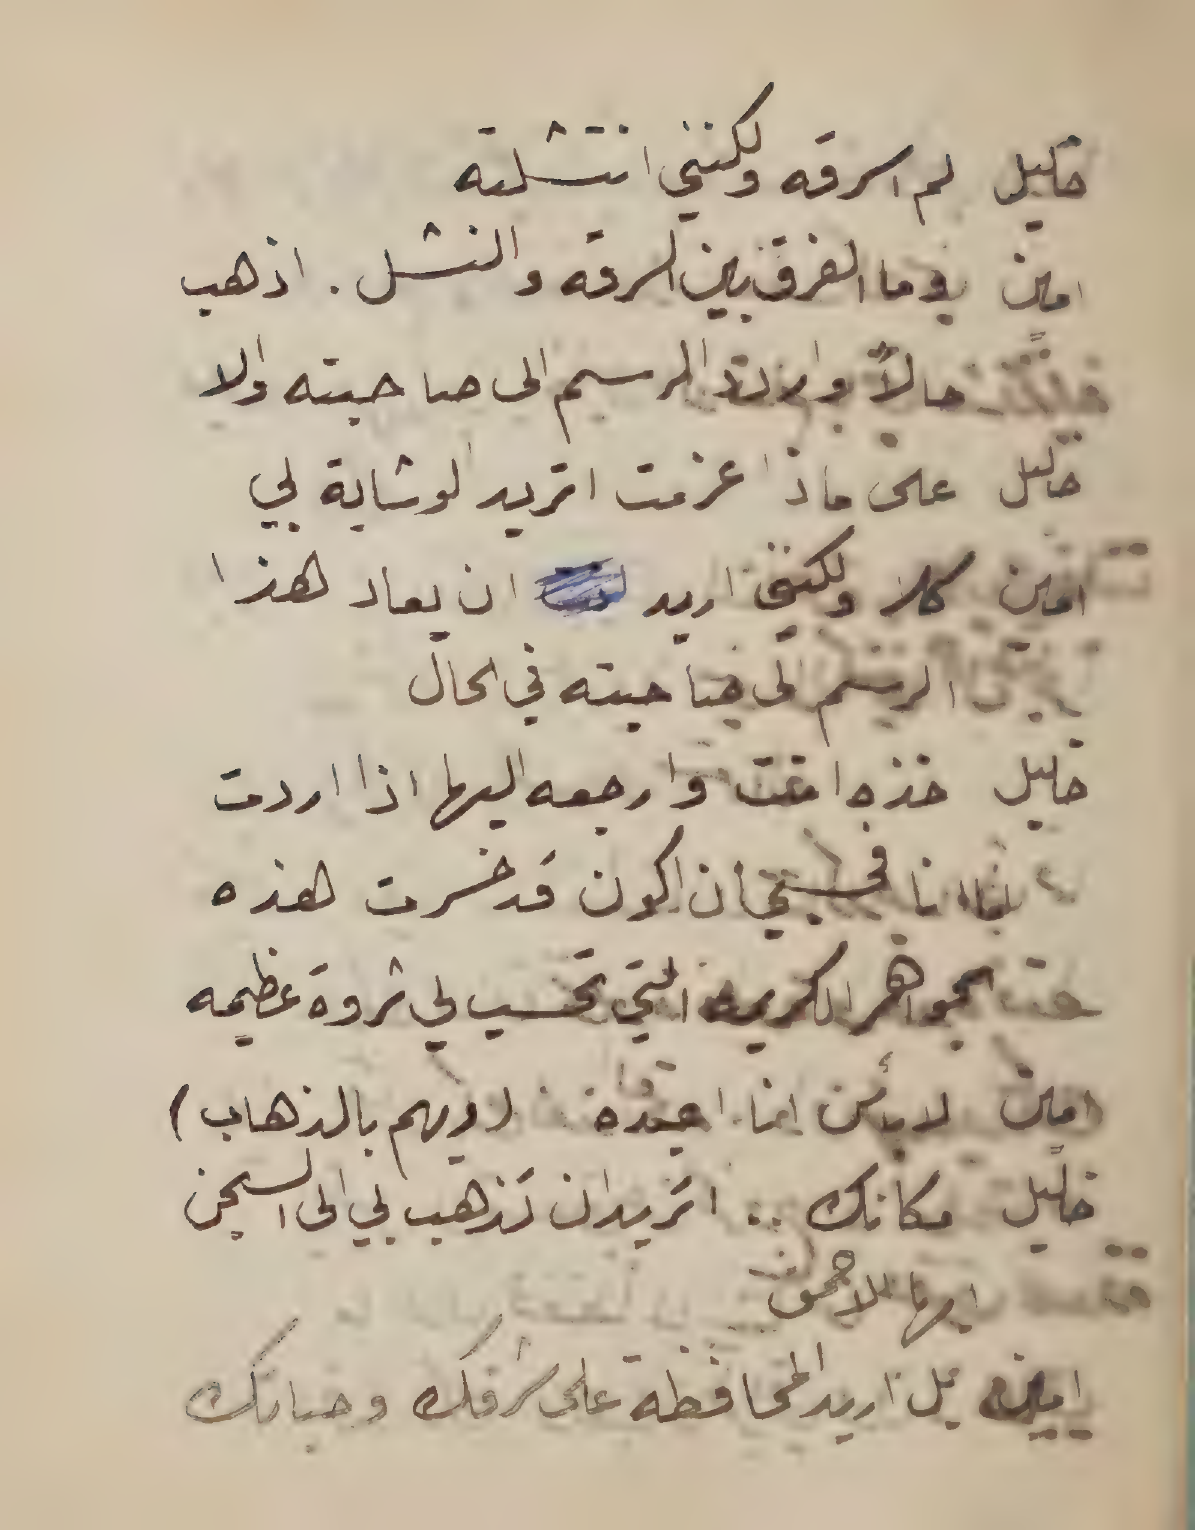 خليل لم اسرقه ولكنني انتشلته
امين وما الفرق بين السرقه والنشل . اذهب
حالاً واردد الرسم الى صاحبته والا
خليل على ماذا عزمت اتريد الوشاية بي
امين كلا ولكنني اريد ان يعاد هذا
الرسم الى صاحبته في الحال
خليل خذه انت وارجعه اليها اذا اردت
اما انا فيكفيني ان اكون قد خسرت هذه
الجواهر الكريمه التي تحسب لي ثروة عظيمه
امين لا بأس انا اعيده (ويهم بالذهاب)
خليل مكانك .. اتريد ان تذهب بي الى السجن
ايها الاحمق
امين بل اريد المحافظة على شرفك وحياتك